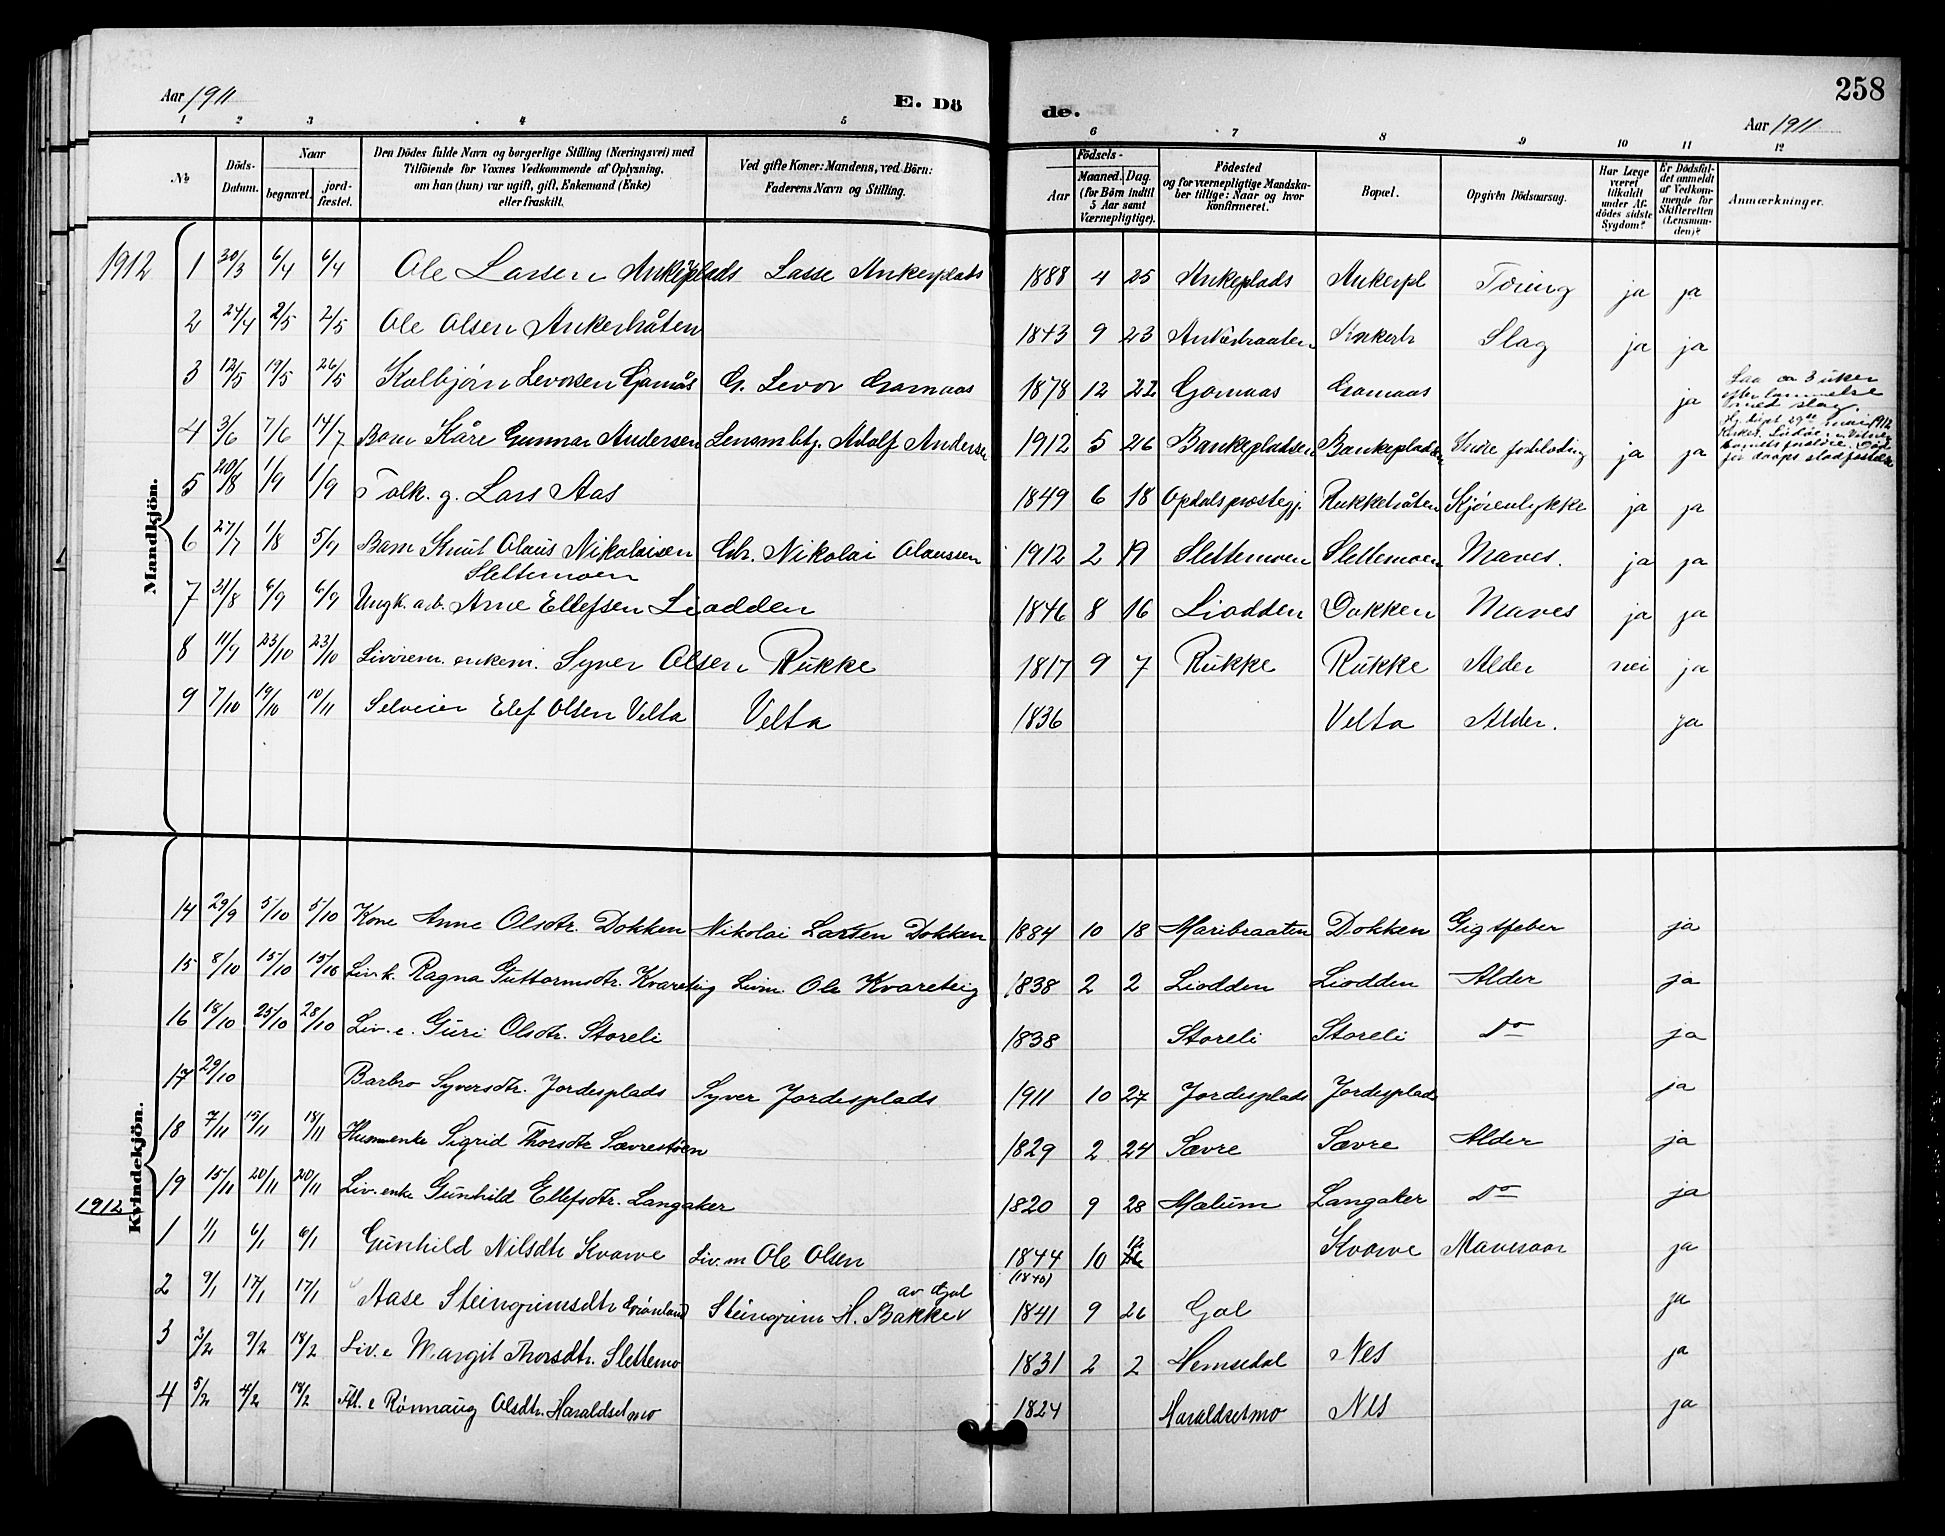 Aar 1911
E. Dö
de.
258
Aar 1911
1 2 3 4 5 6 7 8 9 10 11 12
№
Döds-Datum.
Naar
begravet.
jord-fæstet.
Den Dödes fulde Navn og borgerlige Stilling (Næringsvei) med
Tilföiende for Voxnes Vedkommende af Oplysning,
om han (hun) var ugift, gift, Enkemand (Enke)
eller fraskilt.
Ved gifte Koner: Mandens, ved Börn:
Faderens Navn og Stilling.
Födsels-
Aar
Maaned. Dag.
(for Börn indtil
5 Aar samt
Værnepligtige).
Födested
og for værnepligtige Mandska-
ber tillige: Naar og hvor
konfirmeret.
Bopæl.
Opgiven Dödsaarsag.
Har Læge
været
tilkaldt
under Af-
dödes sidste
Sygdom?
Er Dödsfal-
det anmeldt
af Vedkom-
mende for
Skifteretten
(Lensman-
den)?
Anmærkninger.
Mandkjön.
1912 1 30/3 6/4 6/4 Ole Larsen Ankerplads Lasse Ankerplads 1888 4 25 Ankerplads Ankerpl Tæring ja ja
2 24/4 2/5 2/5 Ole Olsen Ankerbråten 1843 9 23 Ankerbraaten Ankerbr Slag ja ja
3 12/5 19/5 26/5 Kolbjørn Levorsen Gamås G. Levor Gamaas 1878 12 22 Gamaas Gamaas ja
Laa ca 3 uker
efter lammelse
ved slag.
4 3/6 7/6 14/7 Barn Kåre Gunnar Andersen Lensm.btj. Adolf Andersen 1912 5 26 Bankepladsen Bankepladsen Indre forblødning ja ja
5 20/8 1/9 1/9 Folk. g. Lars Aas 1849 6 18 Opdals prestegj. Rukkebråten Skjørenlykke ja ja
6 27/7 1/8 5/9 Barn Knut Olaus Nikolaisen Gbr. Nikolai Olaussen 1912 2 19 Slettemoen Slettemoen Maves. ja ja
Slettemoen
7 31/8 6/9 6/9 Ungk. a.b. Arne Ellefsen Liodden 1846 8 16 Liodden Dokken Maves ja ja
8 11/9 23/10 23/10 Livørem. enkem. Syver Olsen Rukke 1817 9 7 Rukke Rukke Alder nei ja
9 7/10 19/10 10/11 Selveier Elef Olsen Velta Velta 1836 Velta Alder. ja
Kvindekjön.
14 29/9 5/10 5/10 Kone Anne Olsdtr. Dokken Nikolai Larsen Dokken 1884 10 18 Maribraaten Dokken Gigtfeber ja
15 8/10 15/10 15/10 Liv.k. Ragna Guttormsdtr. Kvareteig Livm. Ole Kvareteig 1838 2 2 Liodden Liodden Alder ja
16 18/10 25/10 28/10 Liv. e. Guri Olsdtr. Storeli 1838 Storeli Storeli do ja
17 29/10 Barbro Syversdtr. Jordesplads Syver Jordesplads 1911 10 27 Jordesplads Jordesplads ja
18 7/11 15/11 18/11 Husm.enke Sigrid Thorsdtr Sævrestøen 1829 2 24 Sævre Sævre Alder ja
19 15/11 20/11 20/11 Liv. enke Gunhild Ellefsdtr. Langaker 1820 9 28 Mælum Langaker do ja
1912
1 1/1 6/1 6/1 Gunhild Nilsdtr Kvarve Liv.m Ole Olsen 1844 10 Kvarve ja
(1840)
2 9/1 17/1 17/1 Aase Steingrimsdtr Grønland Steingrim H. Bakke av Gol 1841 9 26 Gol ja
3 3/2 9/2 18/2 Liv. e Margit Thorsdtr. Slettemo 1831 2 2 Hemsedal Nes ja
4 5/2 4/2 18/2 e Rønnaug Olsdtr. Haraldsetmo 1824 Haraldsetmo Nes ja